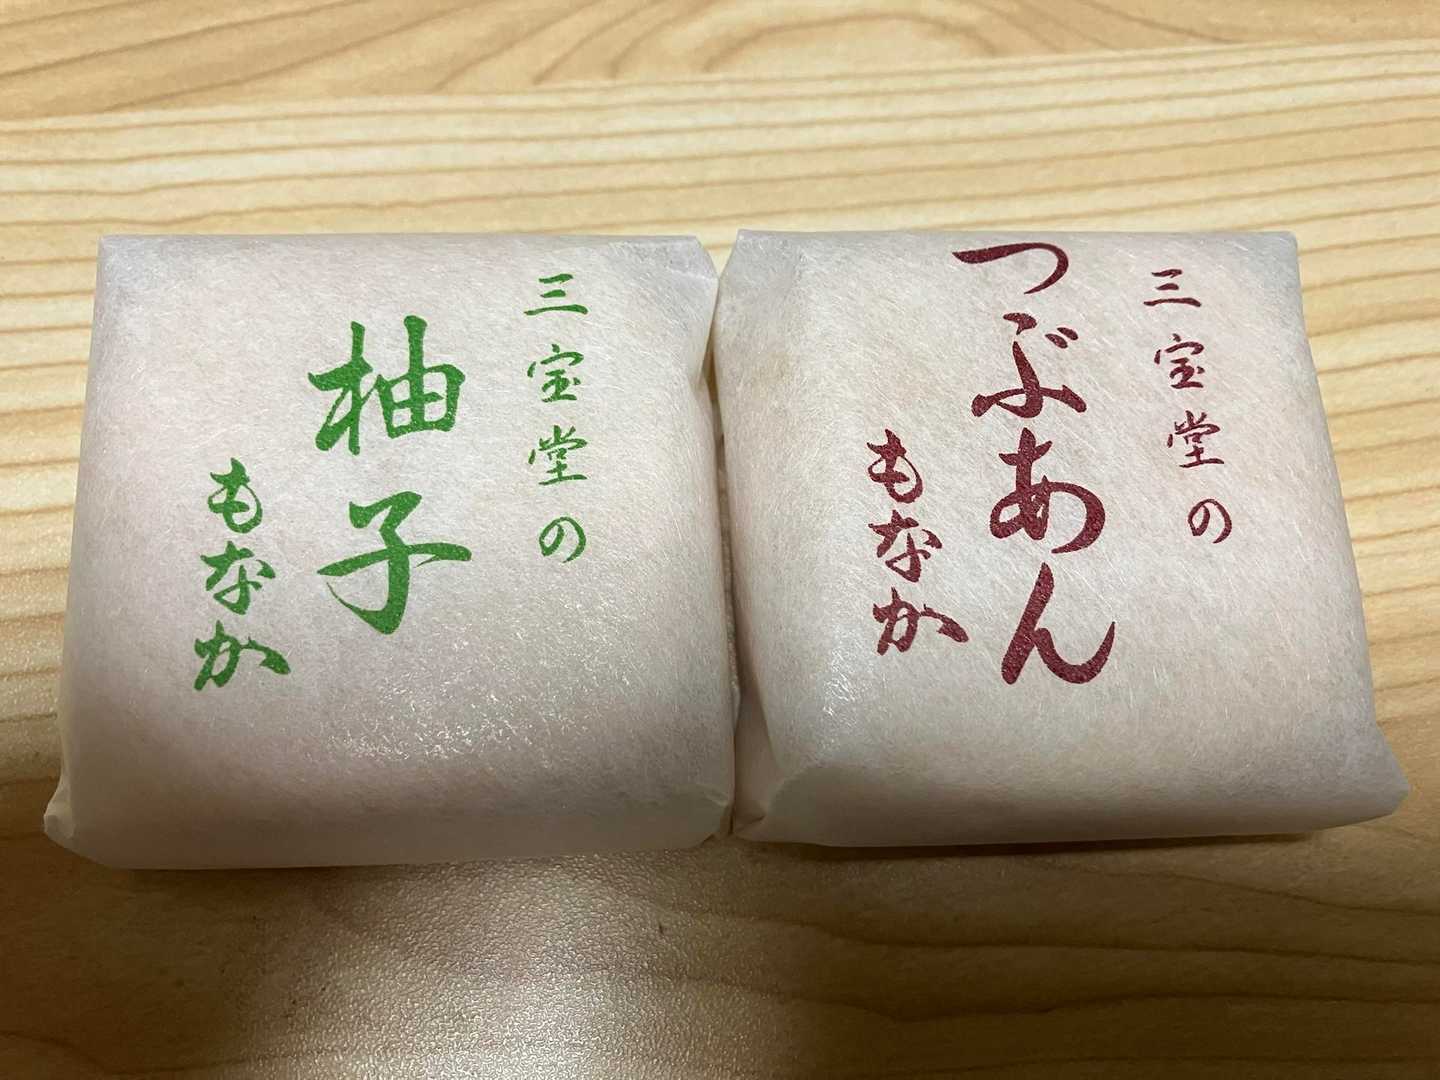 三宝堂の
柚子
もなか
三宝堂の
つぶあん
もなか